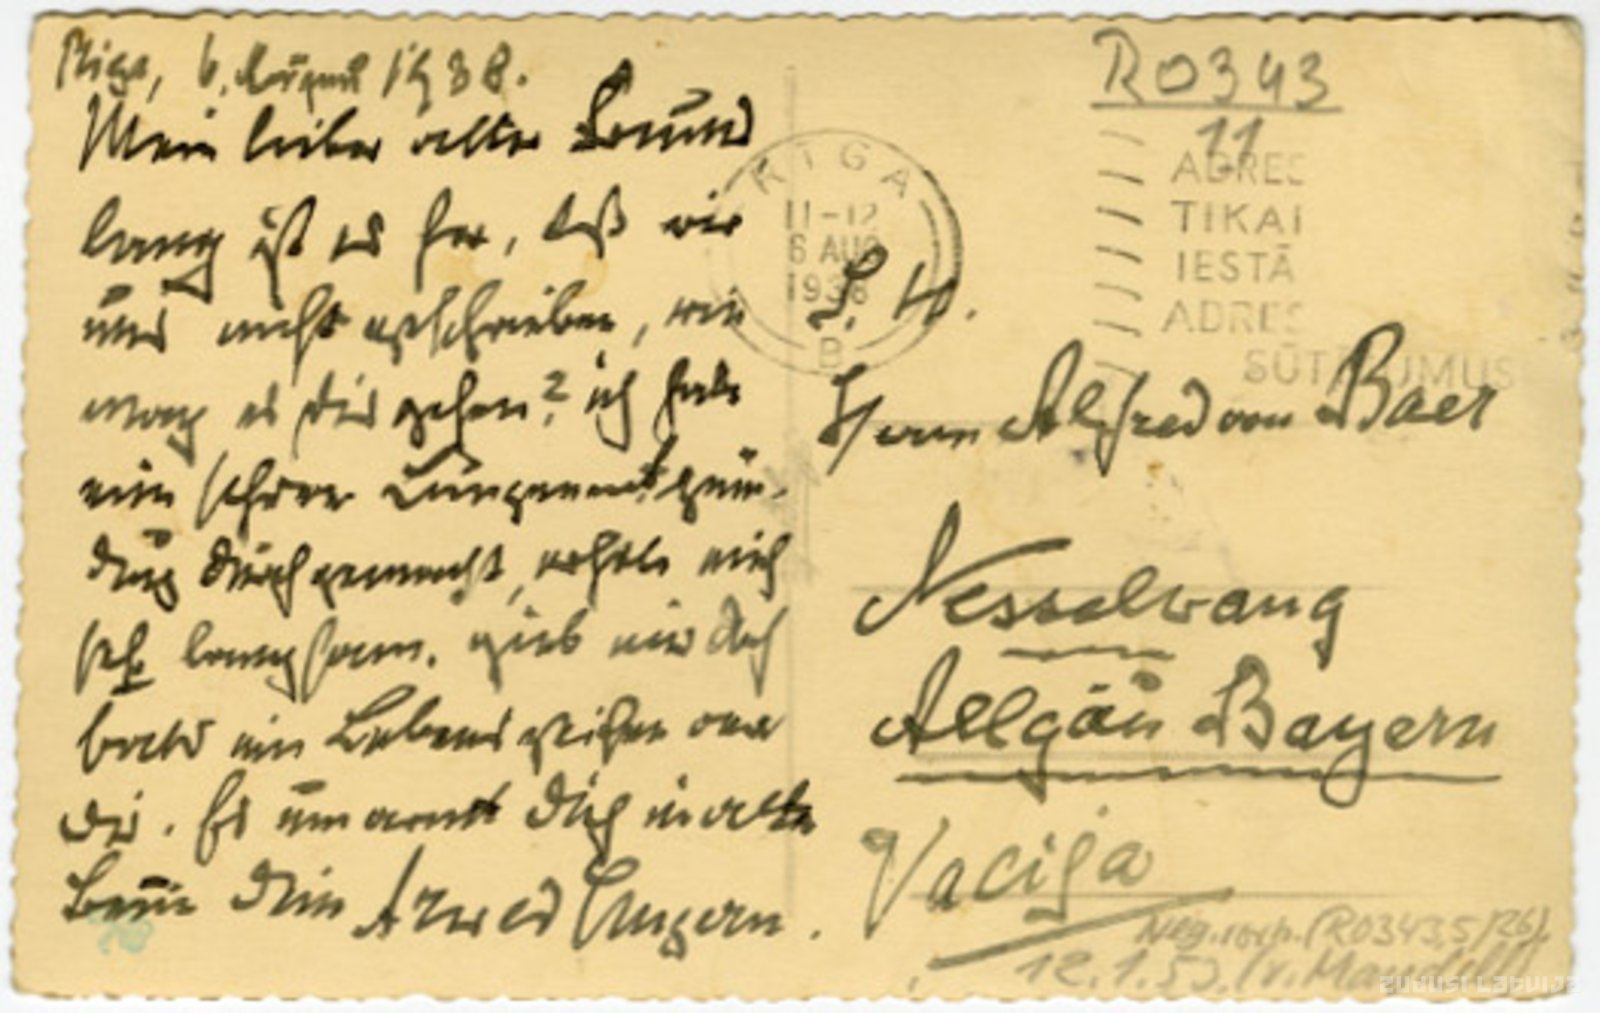 Riga, 6. August 1938.
Mein lieber alter Freund
lang ist es her, daß wir
uns nicht geschrieben, wie
mag es dir gehen? ich habe
eine schwere Lungenentzün-
dung durchgemacht, erhole mich
sehr langsam. gieb mir doch
bald ein Lebenszeichen von
dir. Es umarmt dich in alter
Treue dein Arved Ungern.
RIGA
11-12
6 AUG
1938
B
R0343
11
ADRES
TIKAI
IESTĀ
ADRES
SŪTĪJUMUS
S. H.
Herrn Alfred von Baer
Nesselwang
Allgäu Bayern
Vacija
Neg. vorh. (R0343,5/26).
12.1.53. (v. Mandell)
ZUDUSI LATVIJA